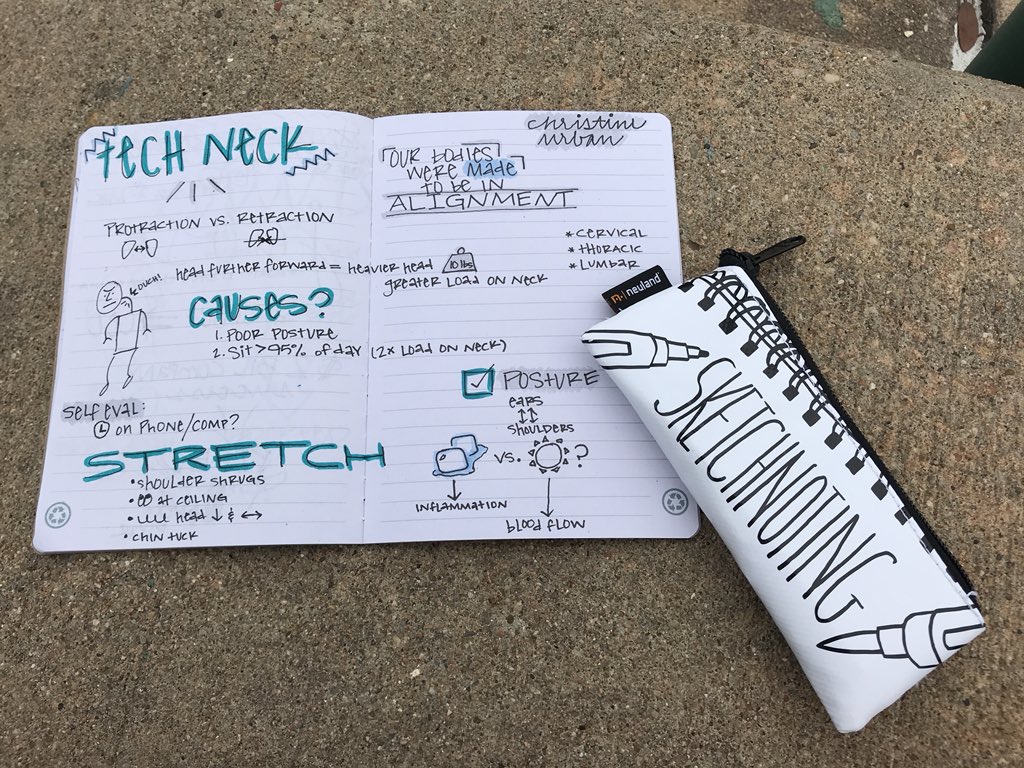 TECH NECK
PROTRACTION VS. RETRACTION
OUCH!
HEAD FURTHER FORWARD = HEAVIER HEAD 10 lbs
GREATER LOAD ON NECK
CAUSES?
1. POOR POSTURE
2. Sit > 95% OF DAY (2x LOAD ON NECK)
SELF EVAL:
ON PHONE/COMP?
STRETCH
• SHOULDER SHRUGS
• AT CEILING
• HEAD ↓ & ↔
• CHIN TUCK
christine
urban
OUR BODIES
WERE MADE
TO BE IN
ALIGNMENT
* CERVICAL
* THORACIC
* LUMBAR
POSTURE
EARS
SHOULDERS
VS. ?
INFLAMMATION
BLOOD FLOW
neuland
SKETCHNOTING